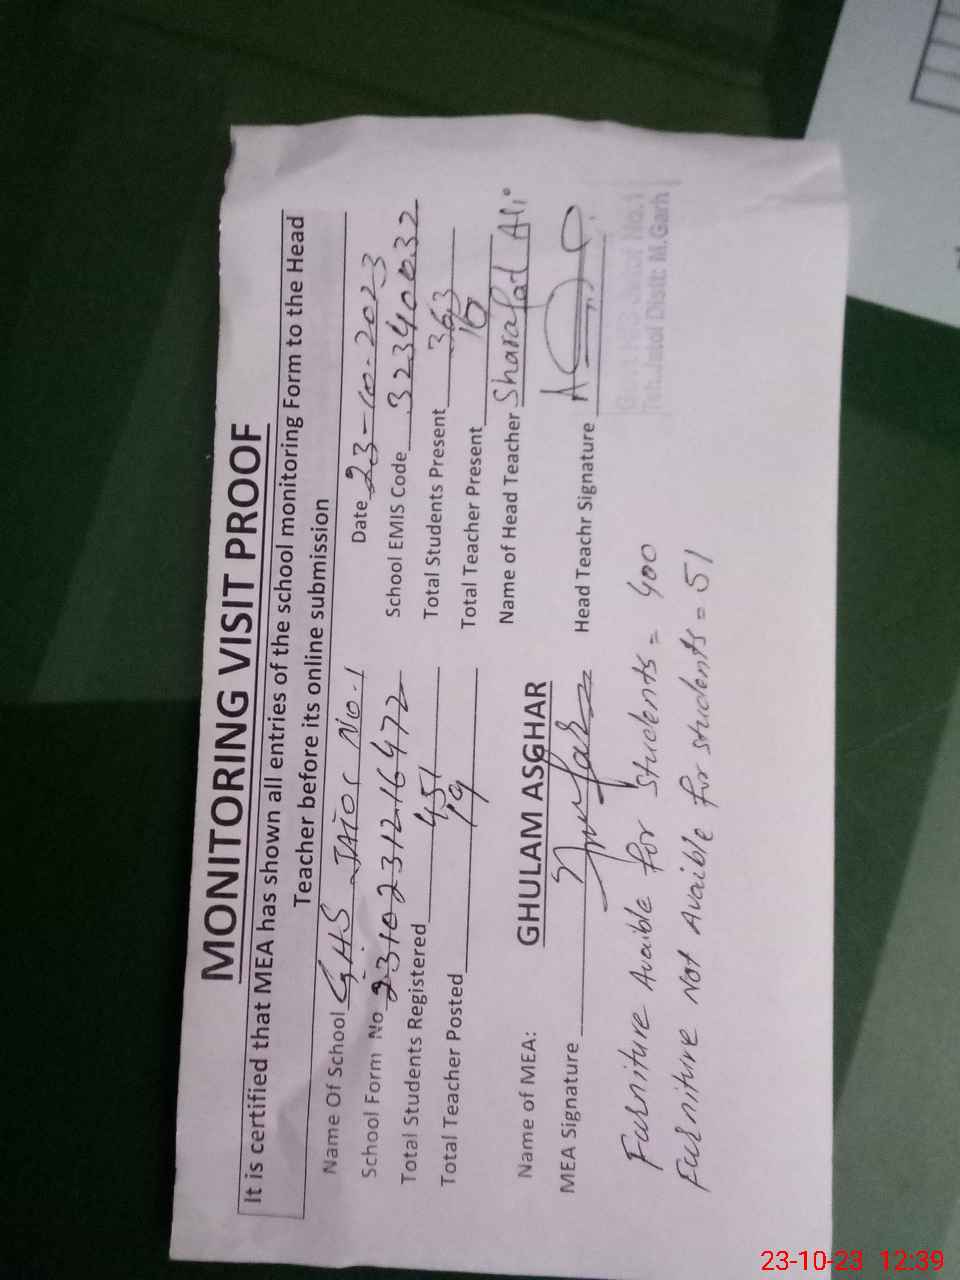 MONITORING VISIT PROOF
It is certified that MEA has shown all entries of the school monitoring Form to the Head
Teacher before its online submission
Name Of School GHS JATOI No.1 Date 23-10-2023
School Form No 2310231216472 School EMIS Code 32340032
Total Students Registered 451 Total Students Present 363
Total Teacher Posted 19 Total Teacher Present
Name of Head Teacher Sharafat Ali
Name of MEA: GHULAM ASGHAR
MEA Signature Head Teachr Signature
Govt. HS Jatoi No.1
Teh.Jatoi Distt: M.Garh
Furniture Avaible for Students = 400
Furniture Not Avaible for students = 51
23-10-23 12:39